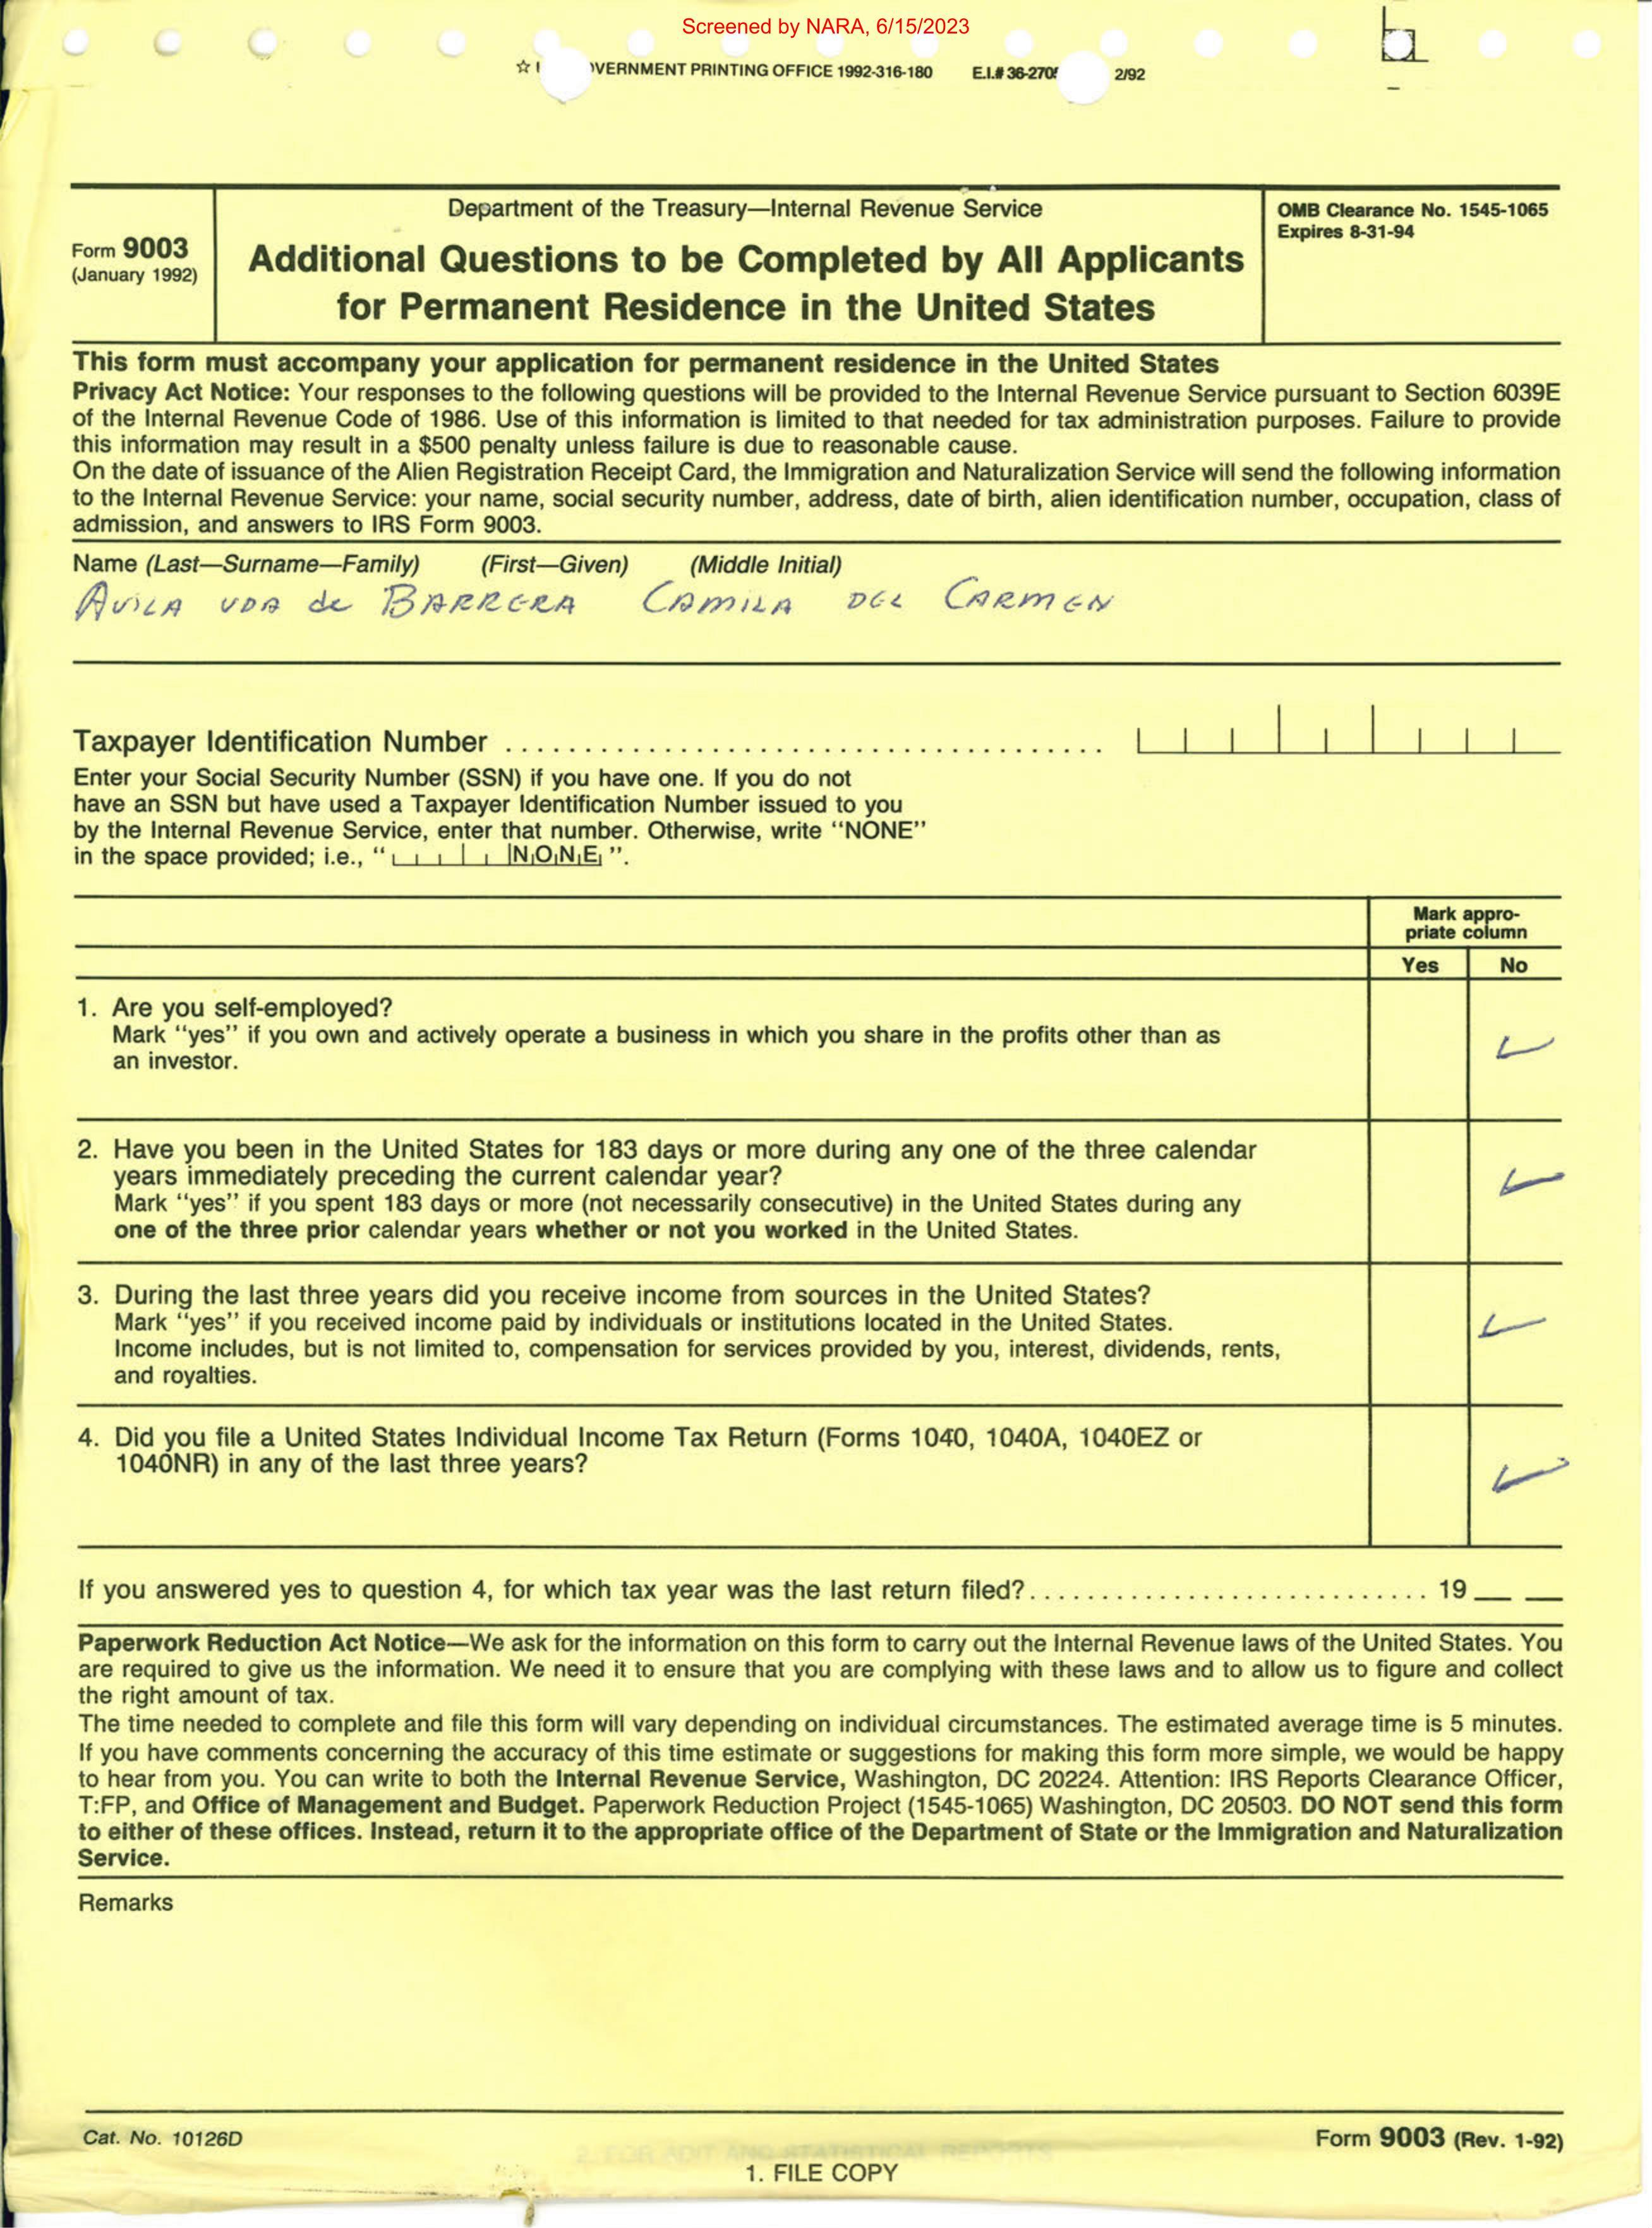 Screened by NARA, 6/15/2023
☆ VERNMENT PRINTING OFFICE 1992-316-180 E.I.# 36-270 2/92
Department of the Treasury—Internal Revenue Service
OMB Clearance No. 1545-1065
Expires 8-31-94
Form 9003
(January 1992)
Additional Questions to be Completed by All Applicants
for Permanent Residence in the United States
This form must accompany your application for permanent residence in the United States
Privacy Act Notice: Your responses to the following questions will be provided to the Internal Revenue Service pursuant to Section 6039E
of the Internal Revenue Code of 1986. Use of this information is limited to that needed for tax administration purposes. Failure to provide
this information may result in a $500 penalty unless failure is due to reasonable cause.
On the date of issuance of the Alien Registration Receipt Card, the Immigration and Naturalization Service will send the following information
to the Internal Revenue Service: your name, social security number, address, date of birth, alien identification number, occupation, class of
admission, and answers to IRS Form 9003.
Name (Last—Surname—Family) (First—Given) (Middle Initial)
AVILA VDA de BARRERA CAMILA DEL CARMEN
Taxpayer Identification Number ....................................
Enter your Social Security Number (SSN) if you have one. If you do not
have an SSN but have used a Taxpayer Identification Number issued to you
by the Internal Revenue Service, enter that number. Otherwise, write “NONE”
in the space provided; i.e., “ NONE ”.
Mark appro-
priate column
Yes No
1. Are you self-employed?
Mark “yes” if you own and actively operate a business in which you share in the profits other than as
an investor.
2. Have you been in the United States for 183 days or more during any one of the three calendar
years immediately preceding the current calendar year?
Mark “yes” if you spent 183 days or more (not necessarily consecutive) in the United States during any
one of the three prior calendar years whether or not you worked in the United States.
3. During the last three years did you receive income from sources in the United States?
Mark “yes” if you received income paid by individuals or institutions located in the United States.
Income includes, but is not limited to, compensation for services provided by you, interest, dividends, rents,
and royalties.
4. Did you file a United States Individual Income Tax Return (Forms 1040, 1040A, 1040EZ or
1040NR) in any of the last three years?
If you answered yes to question 4, for which tax year was the last return filed?............................ 19 __ __
Paperwork Reduction Act Notice—We ask for the information on this form to carry out the Internal Revenue laws of the United States. You
are required to give us the information. We need it to ensure that you are complying with these laws and to allow us to figure and collect
the right amount of tax.
The time needed to complete and file this form will vary depending on individual circumstances. The estimated average time is 5 minutes.
If you have comments concerning the accuracy of this time estimate or suggestions for making this form more simple, we would be happy
to hear from you. You can write to both the Internal Revenue Service, Washington, DC 20224. Attention: IRS Reports Clearance Officer,
T:FP, and Office of Management and Budget. Paperwork Reduction Project (1545-1065) Washington, DC 20503. DO NOT send this form
to either of these offices. Instead, return it to the appropriate office of the Department of State or the Immigration and Naturalization
Service.
Remarks
Cat. No. 10126D
Form 9003 (Rev. 1-92)
2. FOR ADIT AND STATISTICAL REPORTS
1. FILE COPY